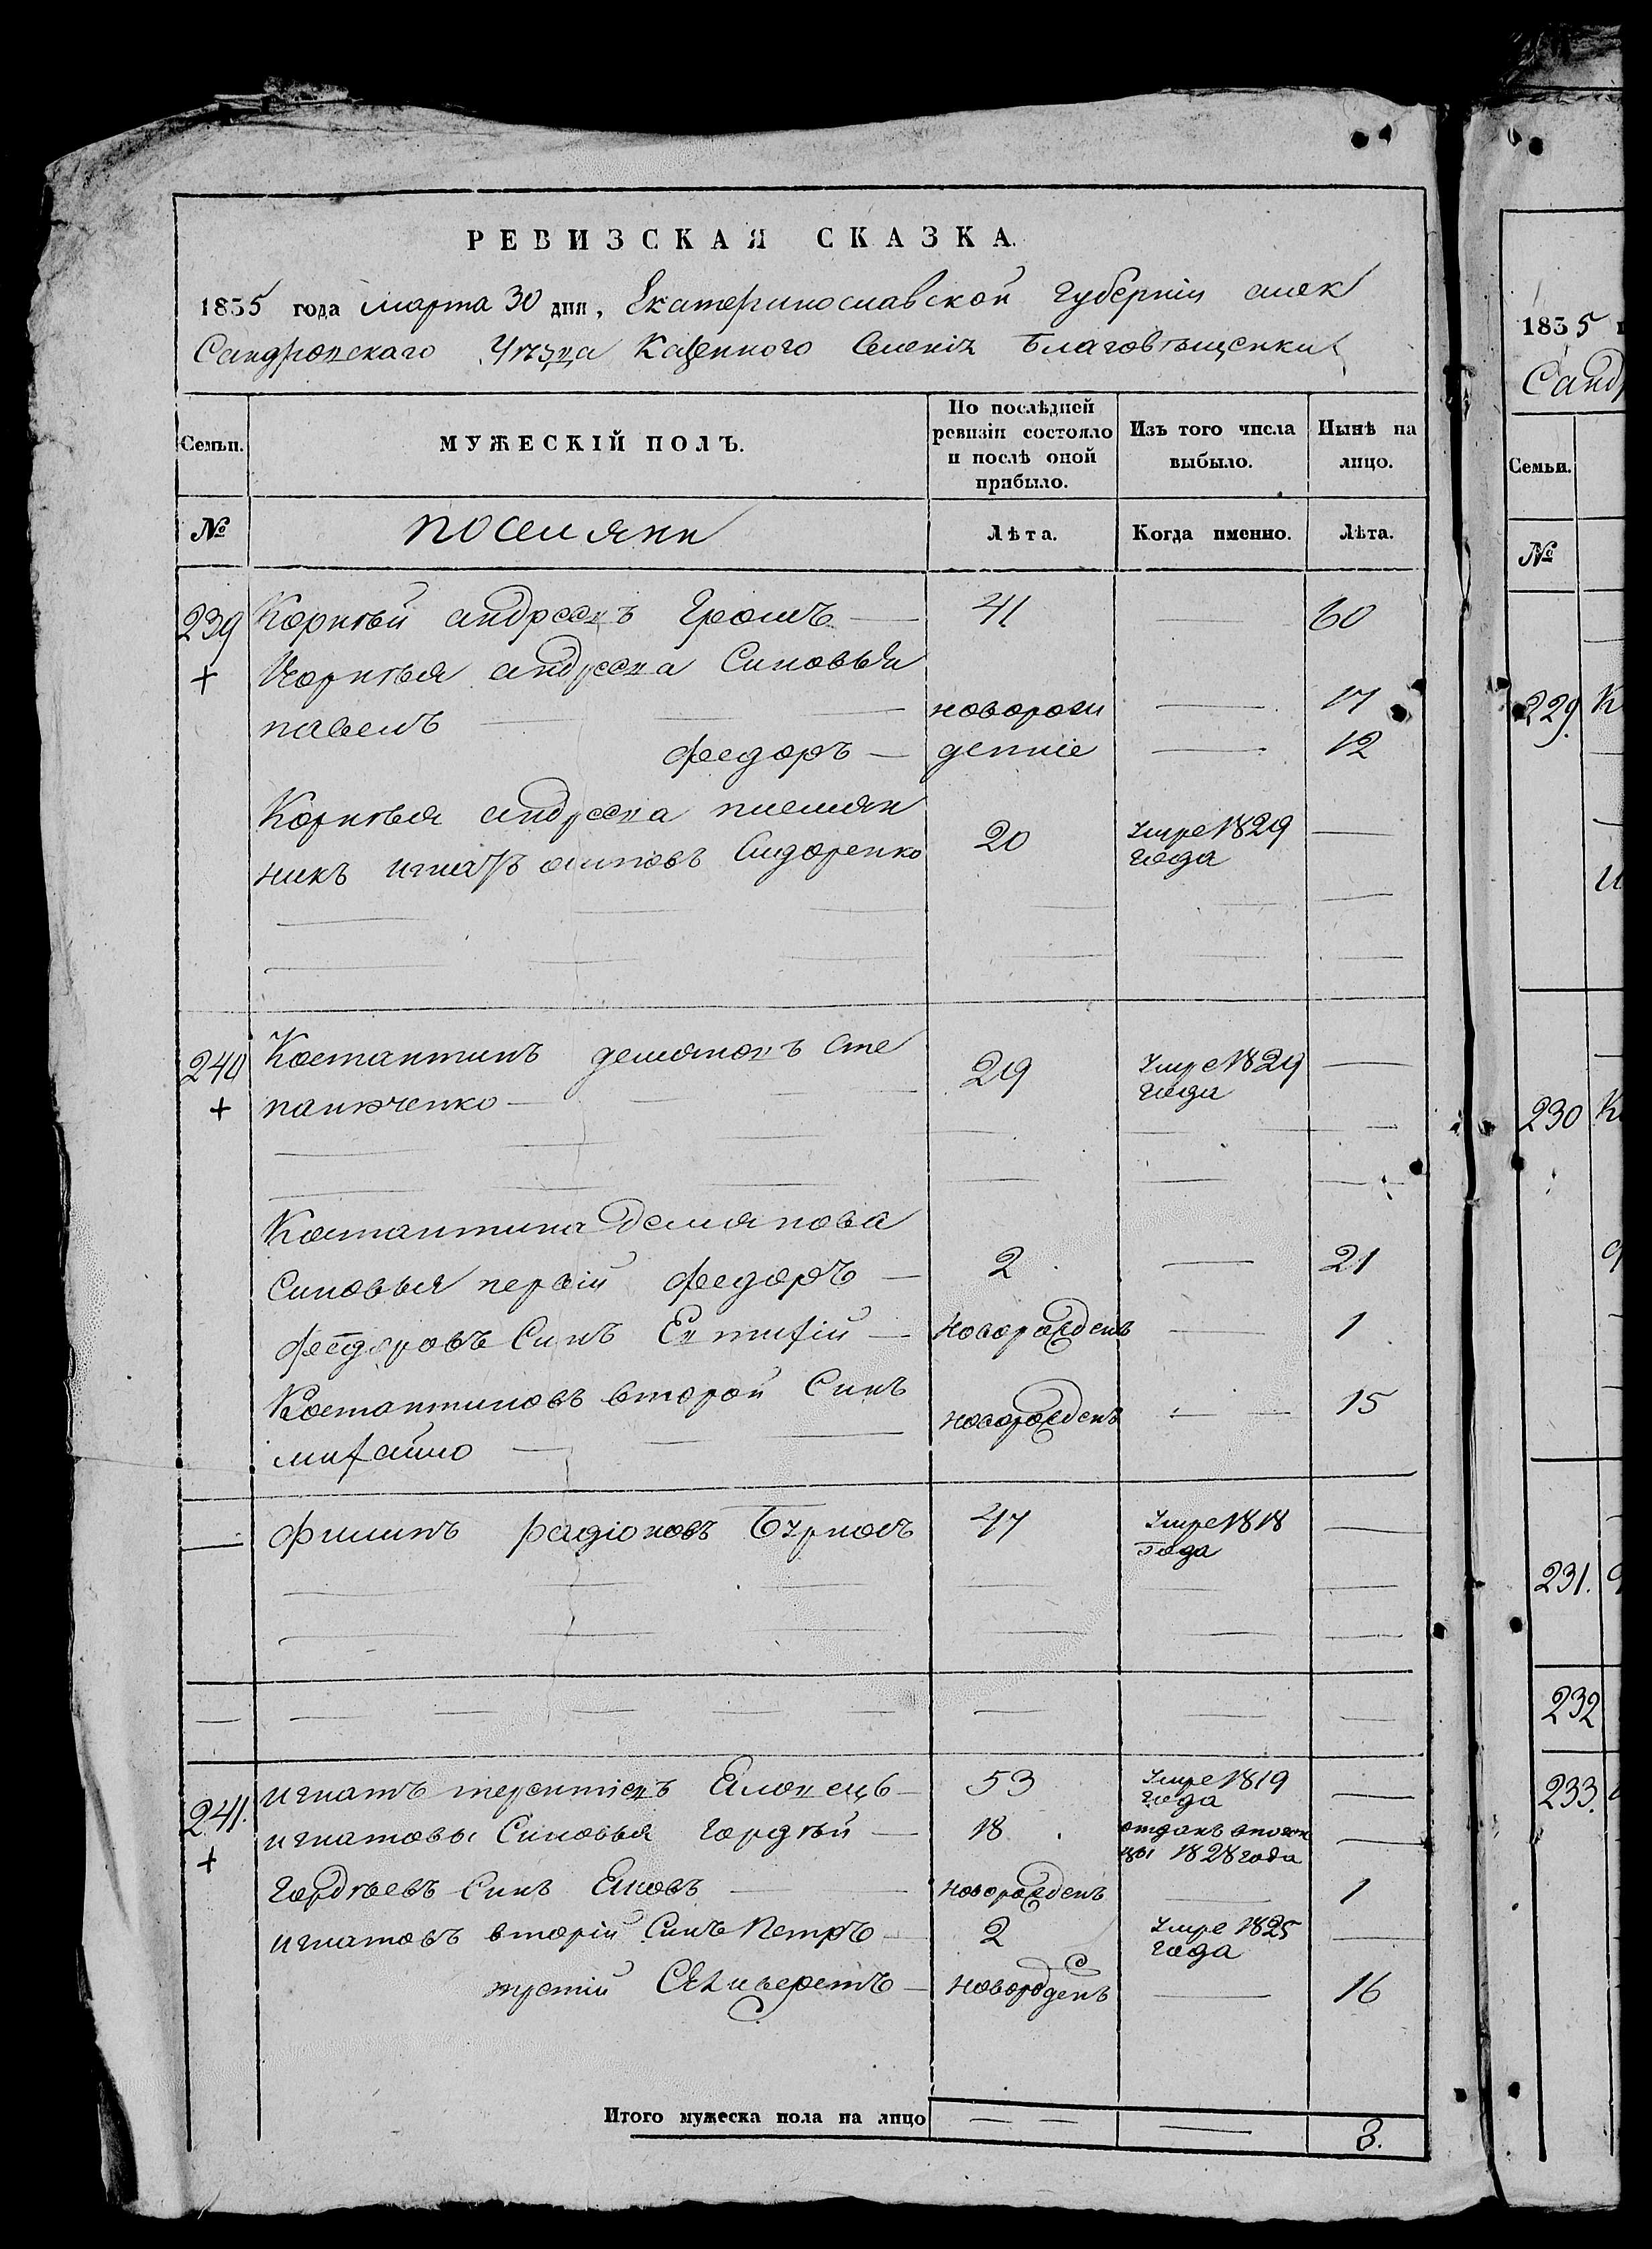 РЕВИЗСКАЯ СКАЗКА.
1835 года марта 30 дня, Екатеринославской губернии алек
Сандровскаго Уѣзда Казенного Селенія Благовѣщенки
Семьи. МУЖЕСКІЙ ПОЛЪ. По послѣдней ревизіи состояло и послѣ оной прибыло. Изъ того числа выбыло. Нынѣ на лицо.
№ поселяни Лѣта. Когда именно. Лѣта.
239 Корнѣй андреевъ Громъ 41 60
+ Корнѣя андреева Синовья
павелъ новорож 17
федоръ денніе 12
Корнѣя андреева племян
никъ игнатъ осиповъ Сидоренко 20 Умре 1829 года
240 Костантинъ демяновъ Сте 29 Умре 1829 года
+ панюченко
Костантина Демянова
Синовья первій федоръ 2 21
федоровъ Синъ Евтифій Новорожденъ 1
Костантиновъ второй Синъ новорожденъ 15
михайло
филипъ радіоновъ Бурполъ 47 Умре 1818 года
241. игнатъ терентіевъ Яловецъ 53 Умре 1819 года
+ игнатовы Синовья гордѣй 18 отданъ 1828 года
гордѣевъ Синъ Яковъ Новорожденъ 1
игнатовъ вторій Синъ Петръ 2 Умре 1825 года
третій Селиверстъ Новорожденъ 16
Итого мужеска пола на лицо 8.
1835
Санд
Семьи.
№
229.
230
231.
232
233.